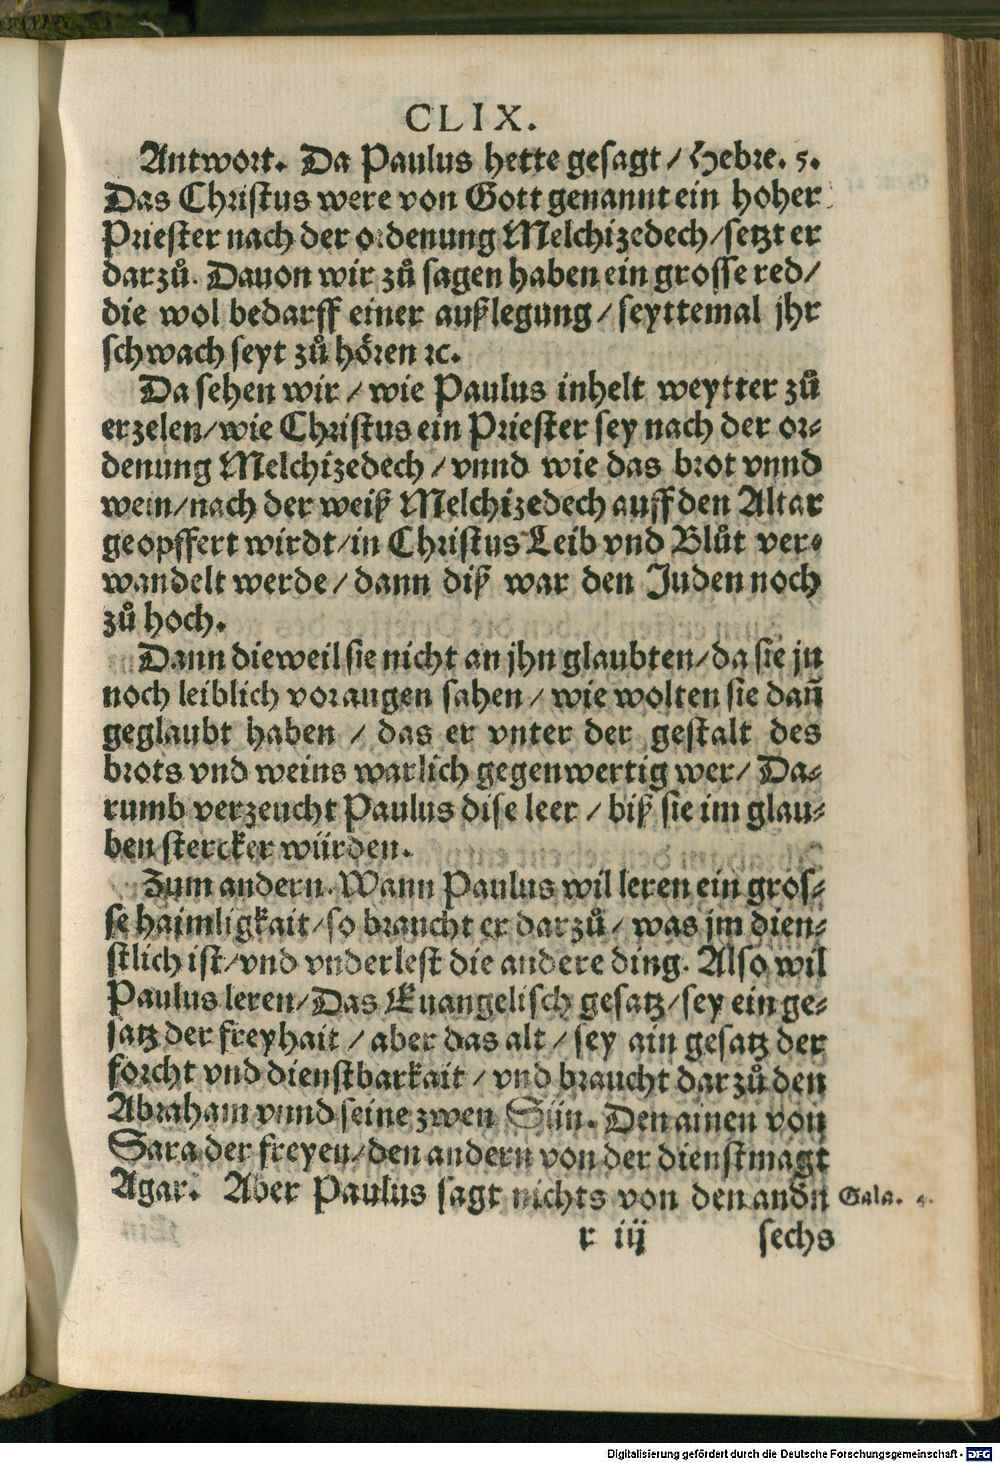 CLIX.
Antwort. Da Paulus hette gesagt / Hebre. 5.
Das Christus were von Gott genannt ein hoher
Priester nach der ordenung Melchizedech / setzt er
darzů. Dauon wir zů sagen haben ein grosse red /
die wol bedarff einer außlegung / seyttemal jhr
schwach seyt zů hören ꝛc.
Da sehen wir / wie Paulus inhelt weytter zů
erzelen / wie Christus ein Priester sey nach der or⸗
denung Melchizedech / vnnd wie das brot vnnd
wein / nach der weiß Melchizedech auff den Altar
geopffert wirdt / in Christus Leib vnd Blůt ver⸗
wandelt werde / dann diß war den Juden noch
zů hoch.
Dann dieweil sie nicht an jhn glaubten / da sie jn
noch leiblich vor augen sahen / wie wolten sie dañ
geglaubt haben / das er vnter der gestalt des
brots vnd weins warlich gegenwertig wer / Da⸗
rumb verzeucht Paulus dise leer / biß sie im glau⸗
ben stercker würden.
Zum andern. Wann Paulus wil leren ein gros⸗
se haimligkait / so braucht er darzů / was jm dien⸗
stlich ist / vnd vnderlest die andere ding. Also wil
Paulus leren / Das Euangelisch gesatz / sey ein ge⸗
satz der freyhait / aber das alt / sey ain gesatz der
forcht vnd dienstbarkait / vnd braucht darzů den
Abraham vnnd seine zwen Sün. Den ainen von
Sara der freyen / den andern von der dienstmagt
Agar. Aber Paulus sagt nichts von den andn̄
Gala. 4.
r iij
sechs
Digitalisierung gefördert durch die Deutsche Forschungsgemeinschaft - DFG